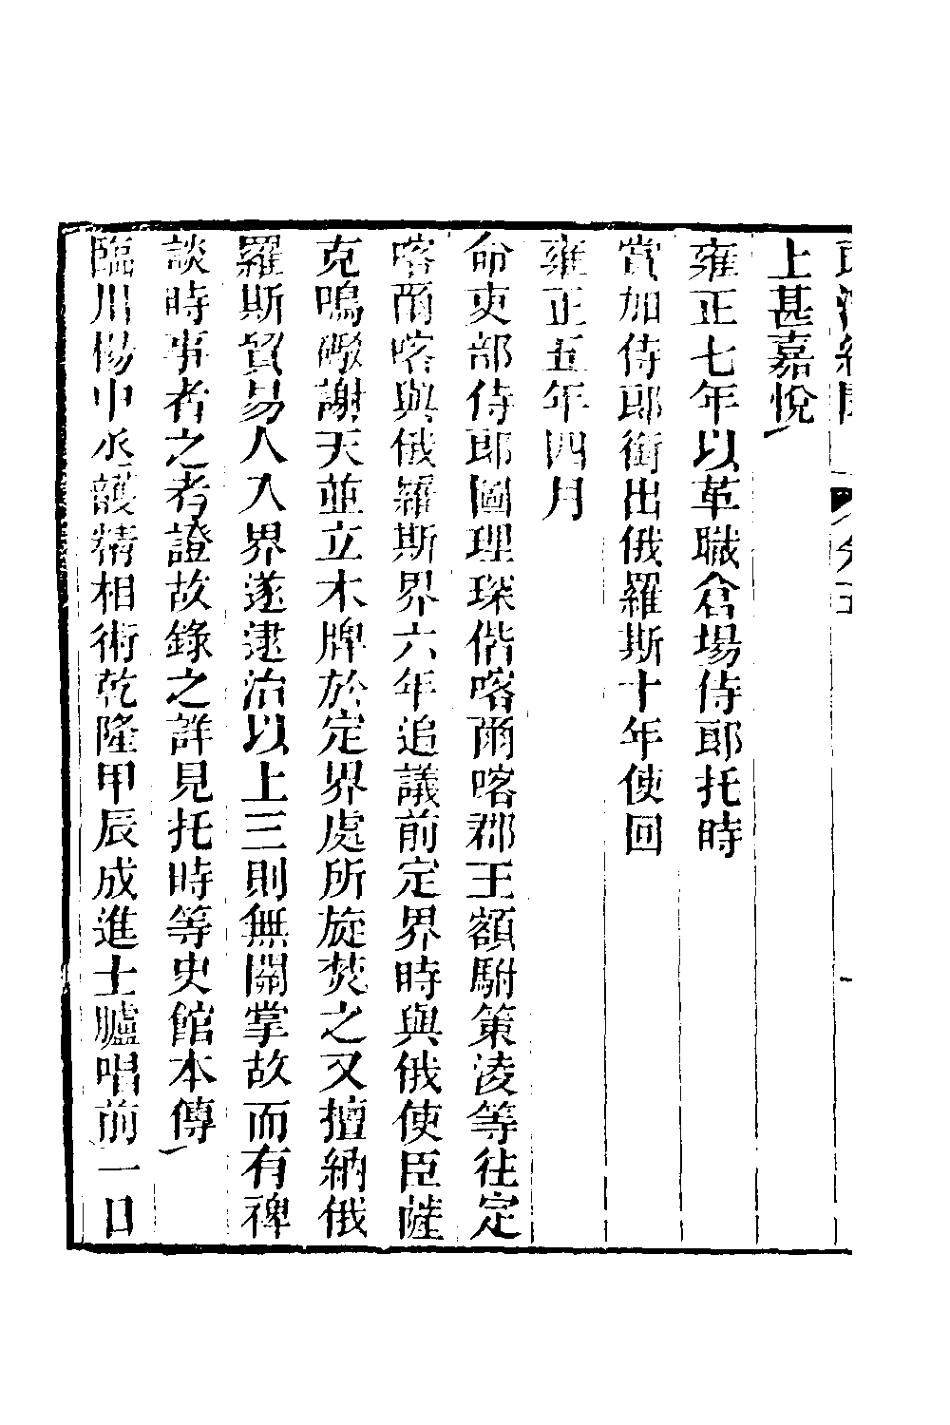 上甚嘉悅
雍正七年以革職倉場侍郎托時
賞加侍郎銜出俄羅斯十年使回
雍正五年四月
命吏部侍郎圖理琛偕喀爾喀郡王額駙策凌等往定
喀爾喀與俄羅斯界六年追議前定界時與俄使臣薩
克鳴礮謝天並立木牌於定界處所旋焚之又擅納俄
羅斯貿易人入界遂逮治以上三則無關掌故而有裨
談時事者之考證故錄之詳見托時等史館本傳
臨川楊中丞護精相術乾隆甲辰成進士臚唱前一日